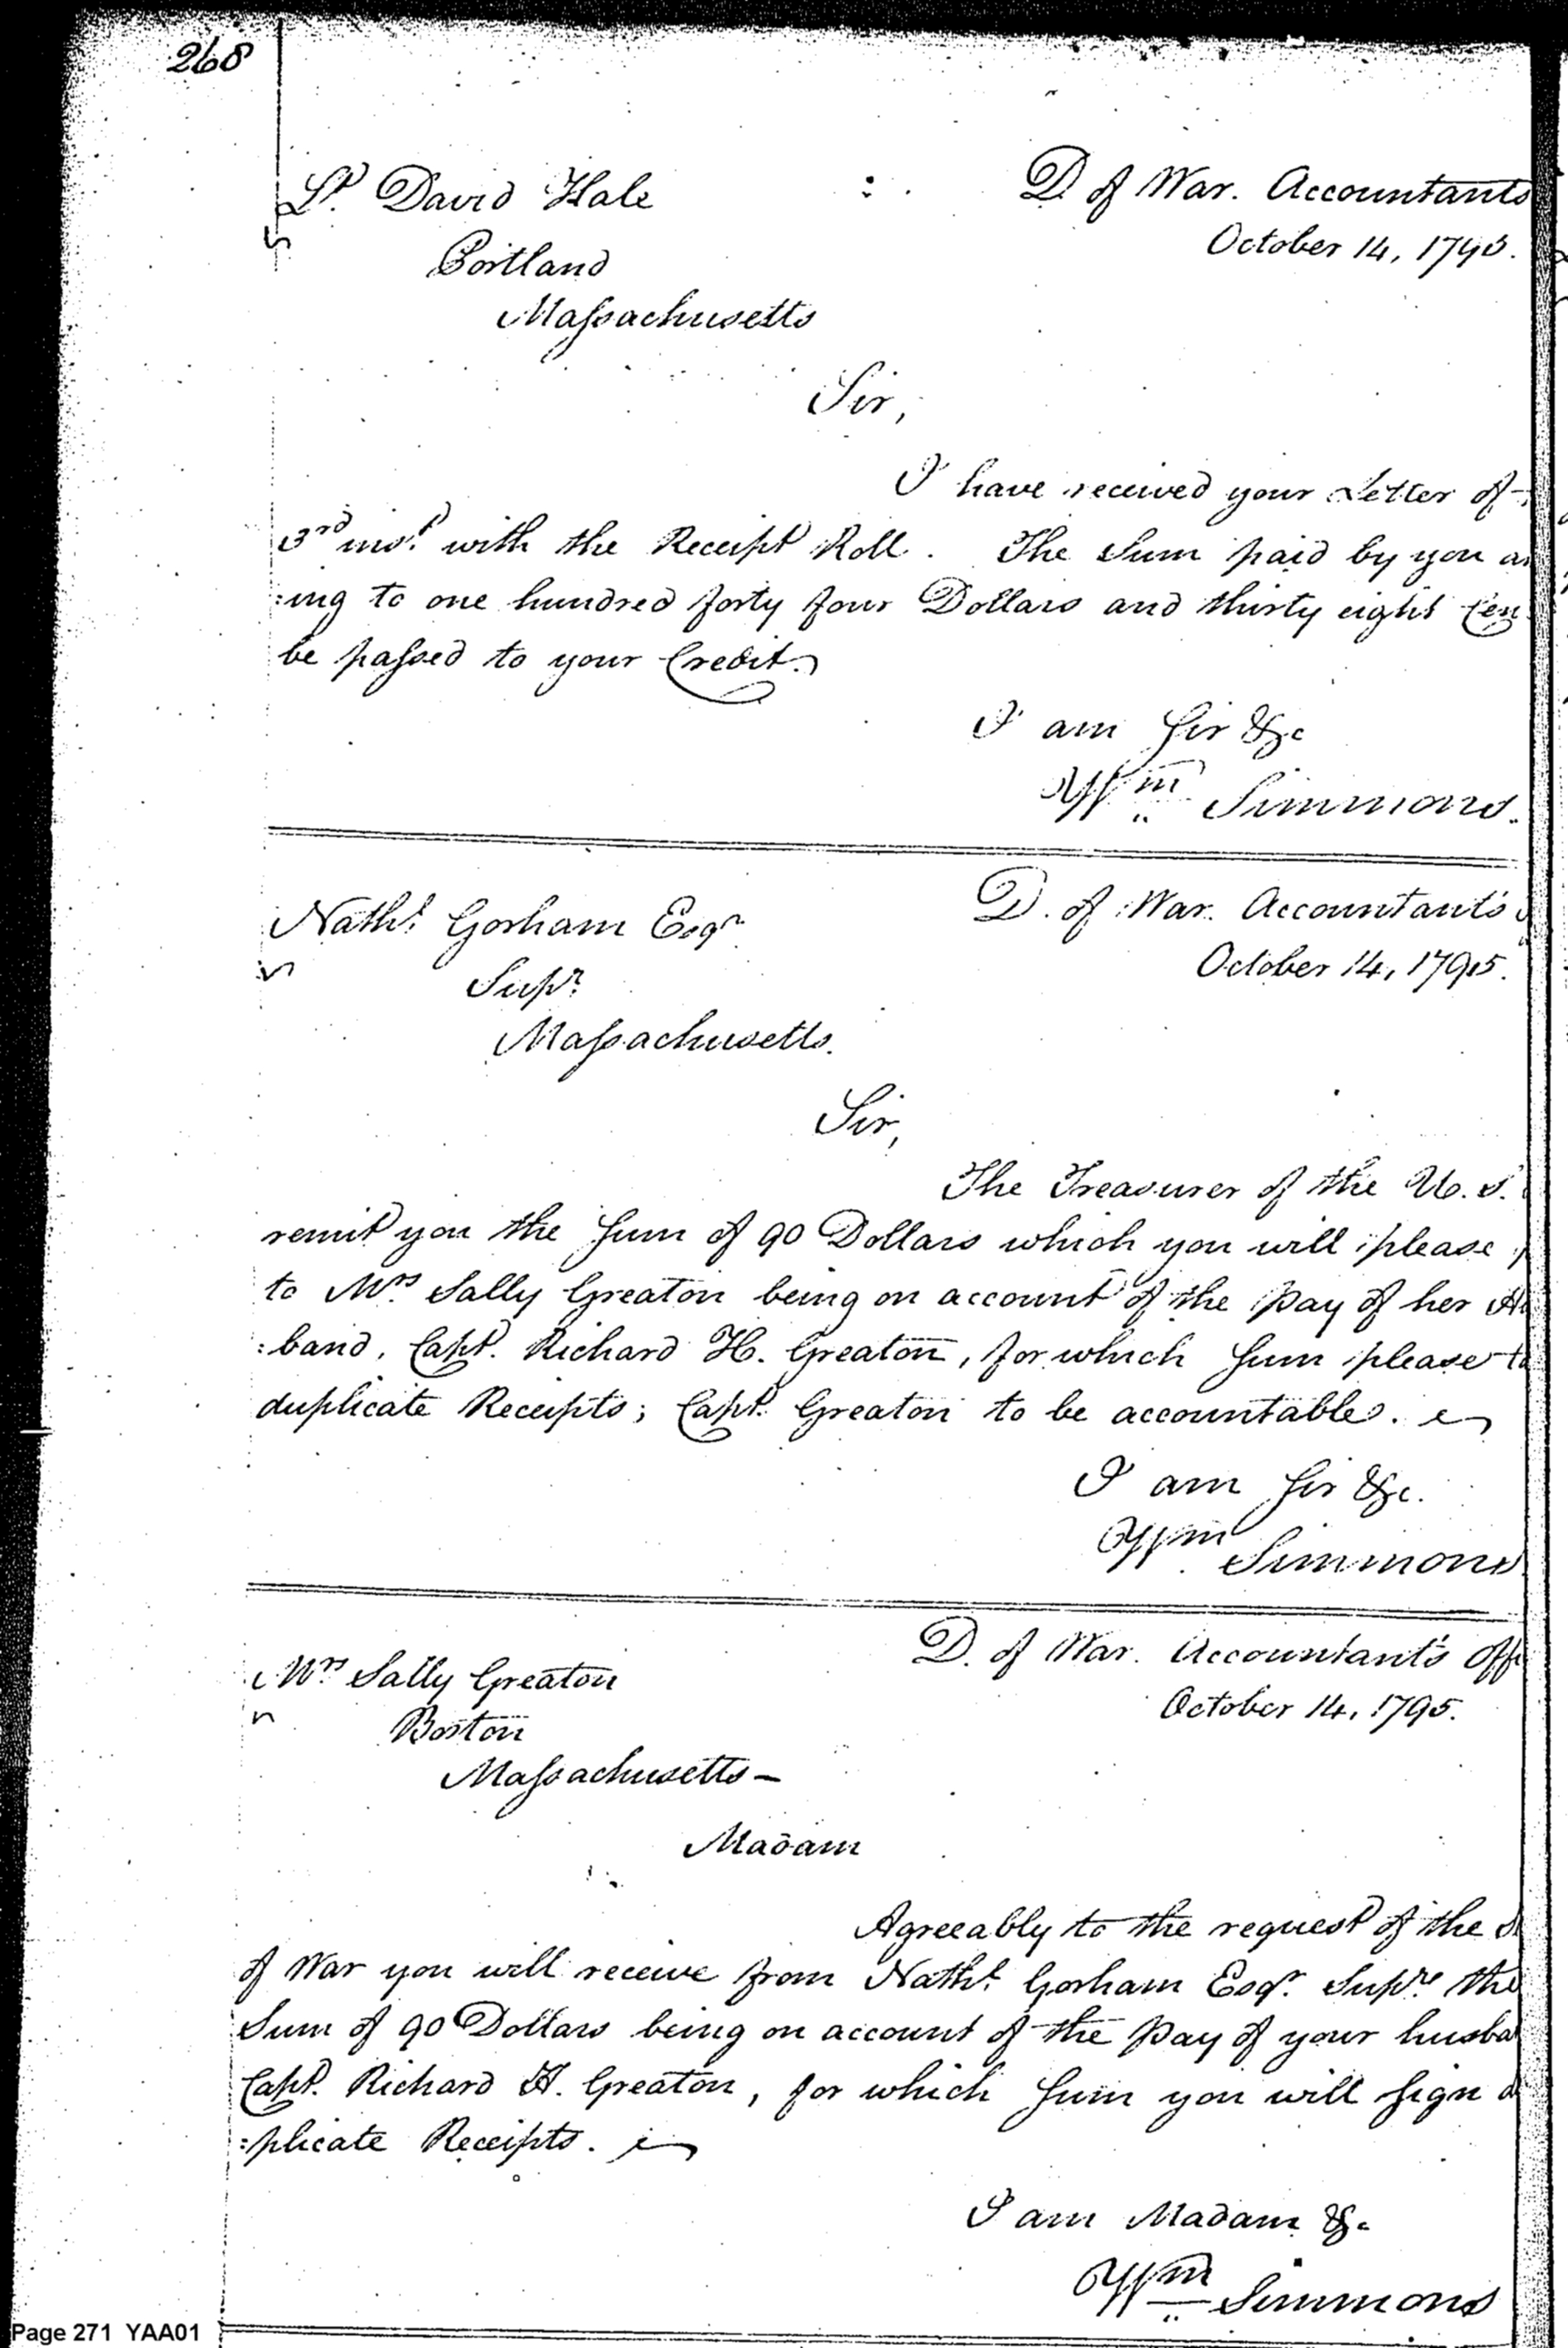 268
Lt. David Hale
D of War. Accountants
October 14, 1795.
Portland
Massachusetts
Sir,
I have received your Letter of
3rd inst. with the Receipt Roll. The Sum paid by you
:ing to one hundred forty four Dollars and thirty eight Cen
be passed to your Credit.
I am Sir &c
Wm Simmons.
Nathl. Gorham Esqr
D. of War. Accountant's
October 14, 1795.
Supr.
Massachusetts.
Sir,
The Treasurer of the U. S.
remit you the Sum of 90 Dollars which you will please
to Mrs Sally Greaton being on account of the pay of her Hu
:band, Capt. Richard H. Greaton, for which Sum please
duplicate Receipts; Capt. Greaton to be accountable.
I am Sir &c.
Wm Simmons
Mrs Sally Greaton
D. of War. Accountant's Off
October 14, 1795.
Boston
Massachusetts —
Madam
Agreeably to the request of the
of War you will receive from Nathl. Gorham Esqr. Supr. the
Sum of 90 Dollars being on account of the pay of your husba
Capt. Richard H. Greaton, for which Sum you will sign d
:plicate Receipts.
I am Madam &c
Wm Simmons
Page 271 YAA01